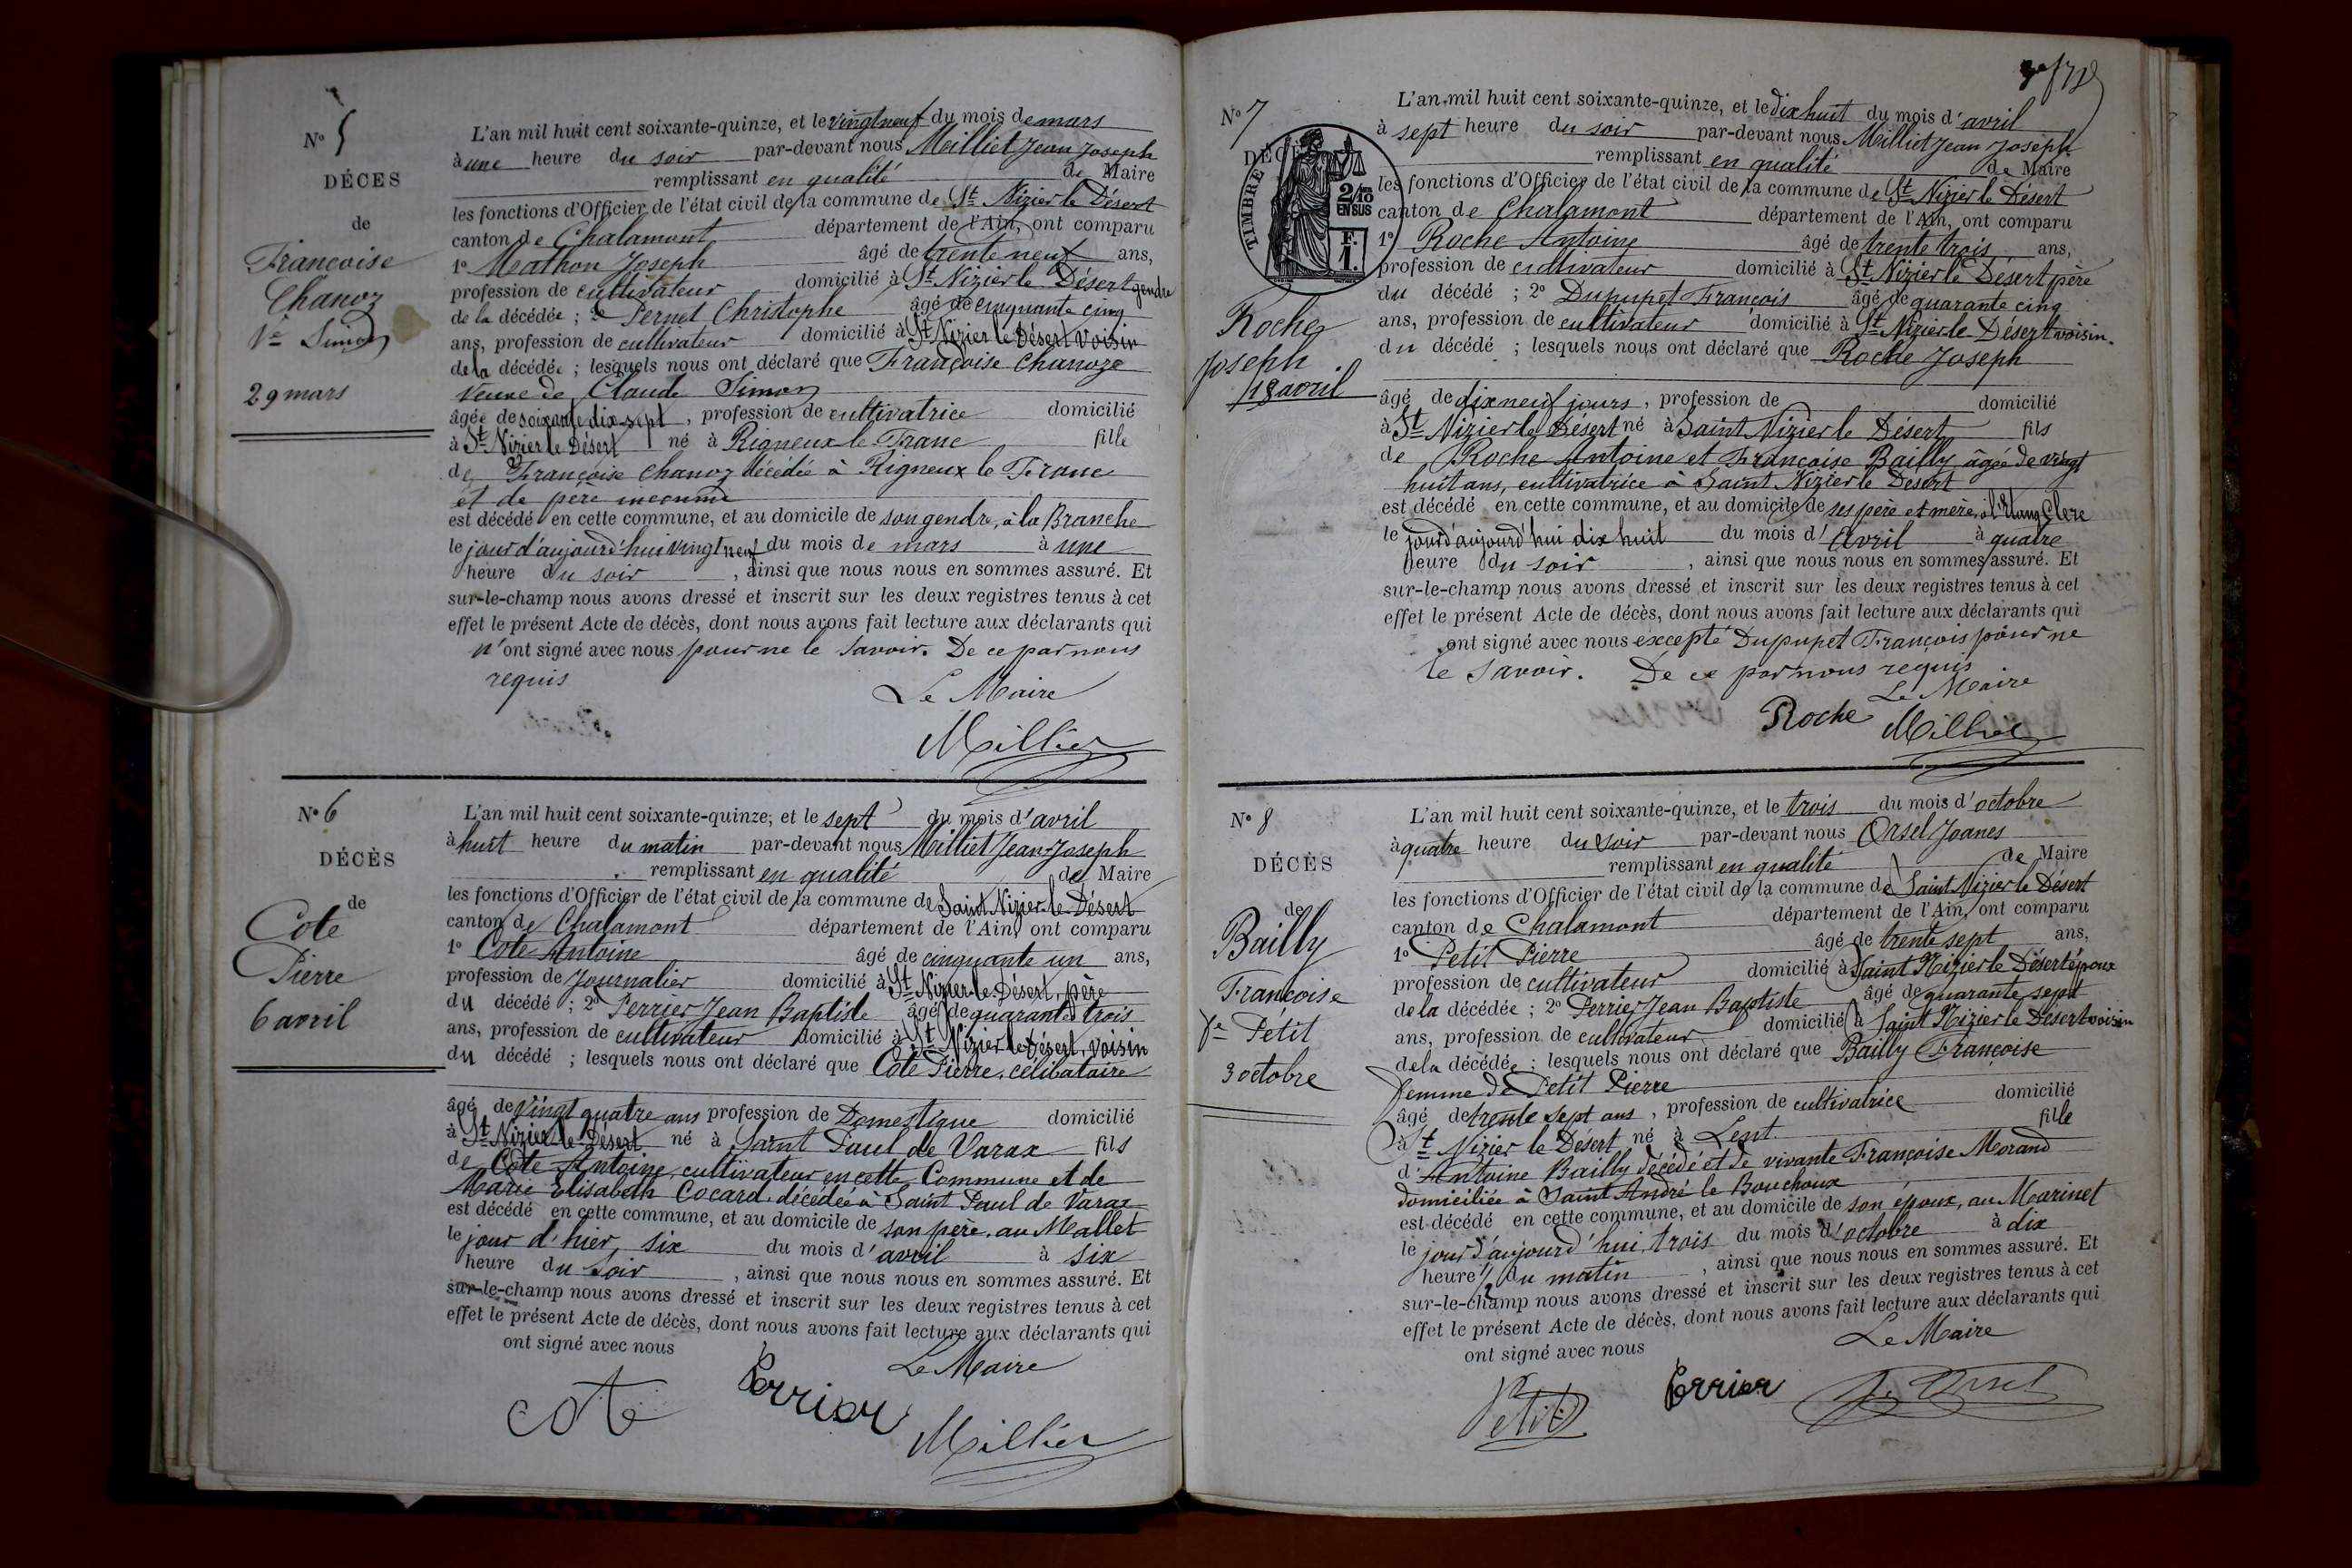 N° 5
DÉCES
de
Françoise
Chanoz
Ve Simon
29 mars
L'an mil huit cent soixante-quinze, et le vingt neuf du mois de mars
à une heure du soir par-devant nous Milliet Jean Joseph
remplissant en qualité de Maire
les fonctions d'Officier de l'état civil de la commune de St Nizier le Désert
canton de Chalamont département de l'Ain, ont comparu
1° Mathon Joseph âgé de trente neuf ans,
profession de cultivateur domicilié à St Nizier le Désert gendre
de la décédée ; 2° Pernet Christophe âgé de cinquante cinq
ans, profession de cultivateur domicilié à St Nizier le Désert voisin
de la décédée ; lesquels nous ont déclaré que Françoise Chanoze
veuve de Claude Simon
âgée de soixante dix-sept, profession de cultivatrice domicilié
à St Nizier le Désert né à Rigneux le Franc fille
de Françoise Chanoz décédée à Rigneux le Franc
et de père inconnu
est décédé en cette commune, et au domicile de son gendre, à la Branche
le jour d'aujourd'hui vingt neuf du mois de mars à une
heure du soir, ainsi que nous nous en sommes assuré. Et
sur-le-champ nous avons dressé et inscrit sur les deux registres tenus à cet
effet le présent Acte de décès, dont nous avons fait lecture aux déclarants qui
n'ont signé avec nous pour ne le savoir. De ce par nous
requis
Le Maire
Milliet
N° 6
DÉCÈS
de
Cote
Pierre
6 avril
L'an mil huit cent soixante-quinze, et le sept du mois d'avril
à huit heure du matin par-devant nous Milliet Jean-Joseph
remplissant en qualité de Maire
les fonctions d'Officier de l'état civil de la commune de Saint Nizier le Désert
canton de Chalamont département de l'Ain, ont comparu
1° Cote Antoine âgé de cinquante un ans,
profession de Journalier domicilié à St Nizier le Désert, père
du décédé ; 2° Perrier Jean Baptiste âgé de quarante trois
ans, profession de cultivateur domicilié à St Nizier le Désert, voisin
du décédé ; lesquels nous ont déclaré que Cote Pierre, célibataire
âgé de vingt quatre ans profession de Domestique domicilié
à St Nizier le Désert né à Saint Paul de Varax fils
de Cote Antoine, cultivateur en cette Commune et de
Marie Elisabeth Cocard, décédée à Saint Paul de Varax
est décédé en cette commune, et au domicile de son père, au Mallet
le jour d'hier, six du mois d'avril à six
heure du soir, ainsi que nous nous en sommes assuré. Et
sur-le-champ nous avons dressé et inscrit sur les deux registres tenus à cet
effet le présent Acte de décès, dont nous avons fait lecture aux déclarants qui
ont signé avec nous
Le Maire
cote Perrier Milliet
N° 7
DÉCÈ
TIMBRE
2/10
EN SUS
F.
1.
Roche
Joseph
18 avril
L'an mil huit cent soixante-quinze, et le dix huit du mois d'avril
à sept heure du soir par-devant nous Milliet Jean Joseph
remplissant en qualité de Maire
les fonctions d'Officier de l'état civil de la commune de St Nizier le Désert
canton de Chalamont département de l'Ain, ont comparu
1° Roche Antoine âgé de trente trois ans,
profession de cultivateur domicilié à St Nizier le Désert père
du décédé ; 2° Dupupet François âgé de quarante cinq
ans, profession de cultivateur domicilié à St Nizier le Désert voisin.
du décédé ; lesquels nous ont déclaré que Roche Joseph
âgé de dix neuf jours, profession de domicilié
à St Nizier le Désert né à Saint Nizier le Désert fils
de Roche Antoine et Françoise Bailly âgée de vingt
huit ans, cultivatrice à Saint Nizier le Désert
est décédé en cette commune, et au domicile de ses père et mère, à l'Etang Clerc
le jour d'aujourd'hui dix huit du mois d'avril à quatre
heure du soir, ainsi que nous nous en sommes assuré. Et
sur-le-champ nous avons dressé et inscrit sur les deux registres tenus à cet
effet le présent Acte de décès, dont nous avons fait lecture aux déclarants qui
ont signé avec nous excepté Dupupet François pour ne
le savoir. De ce par nous requis
Le Maire
Roche Milliet
N° 8
DÉCÈS
de
Bailly
Françoise
fe Petit
3 octobre
L'an mil huit cent soixante-quinze, et le trois du mois d'octobre
à quatre heure du soir par-devant nous Orsel Joanes
remplissant en qualité de Maire
les fonctions d'Officier de l'état civil de la commune de Saint Nizier le Désert
canton de Chalamont département de l'Ain, ont comparu
1° Petit Pierre âgé de trente sept ans,
profession de cultivateur domicilié à Saint Nizier le Désert époux
de la décédée ; 2° Perrier Jean Baptiste âgé de quarante sept
ans, profession de cultivateur domicilié à Saint Nizier le Désert voisin
de la décédée ; lesquels nous ont déclaré que Bailly Françoise
femme de Petit Pierre
âgé de trente sept ans, profession de cultivatrice domicilié
à St Nizier le Désert né à Lent fille
d'Antoine Bailly décédé et de vivante Françoise Morand
domiciliée à Saint André le Bouchoux
est décédé en cette commune, et au domicile de son époux, au Marinet
le jour d'aujourd'hui, trois du mois d'octobre à dix
heure 1/2 du matin, ainsi que nous nous en sommes assuré. Et
sur-le-champ nous avons dressé et inscrit sur les deux registres tenus à cet
effet le présent Acte de décès, dont nous avons fait lecture aux déclarants qui
ont signé avec nous
Le Maire
Petit Perrier J. Orsel